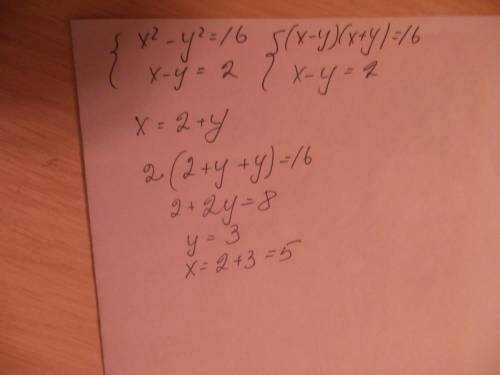 { x² - y² = 16 { (x-y)(x+y) = 16
x-y = 2 x-y = 2
x = 2 + y
2 (2+y+y) = 16
2 + 2y = 8
y = 3
x = 2 + 3 = 5